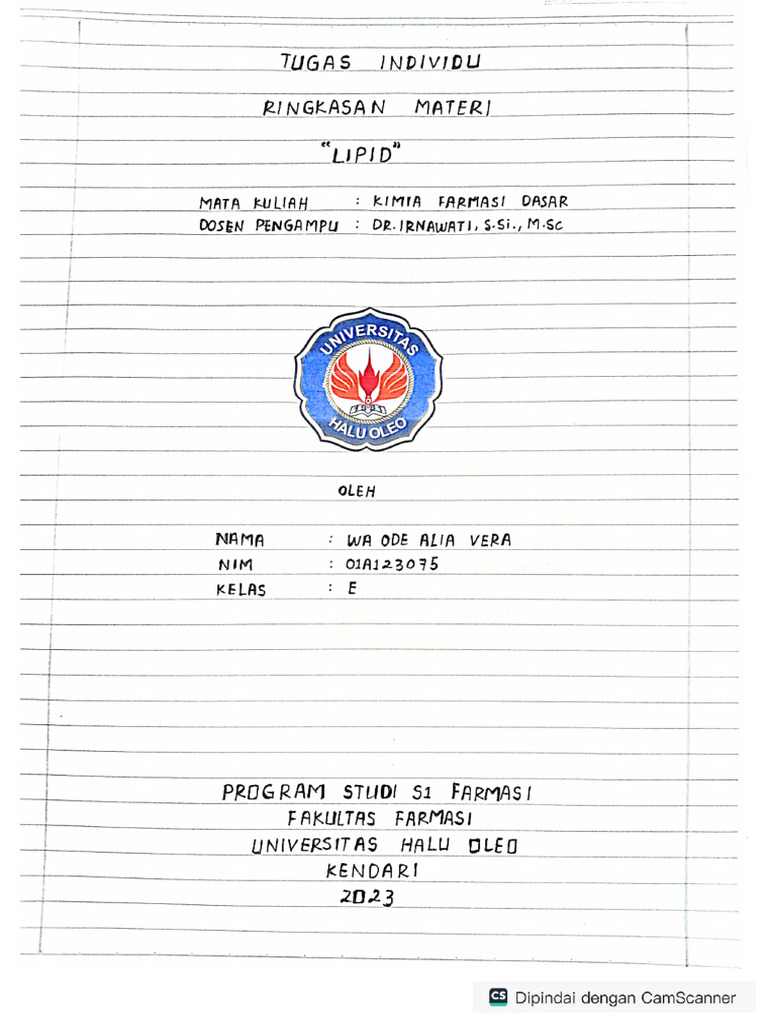 TUGAS INDIVIDU
RINGKASAN MATERI
"LIPID"
MATA KULIAH : KIMIA FARMASI DASAR
DOSEN PENGAMPU : DR. IRNAWATI, S.Si., M.Sc
UNIVERSITAS
HALU OLEO
OLEH
NAMA : WA ODE ALIA VERA
NIM : O1A123075
KELAS : E
PROGRAM STUDI S1 FARMASI
FAKULTAS FARMASI
UNIVERSITAS HALU OLEO
KENDARI
2023
CS Dipindai dengan CamScanner